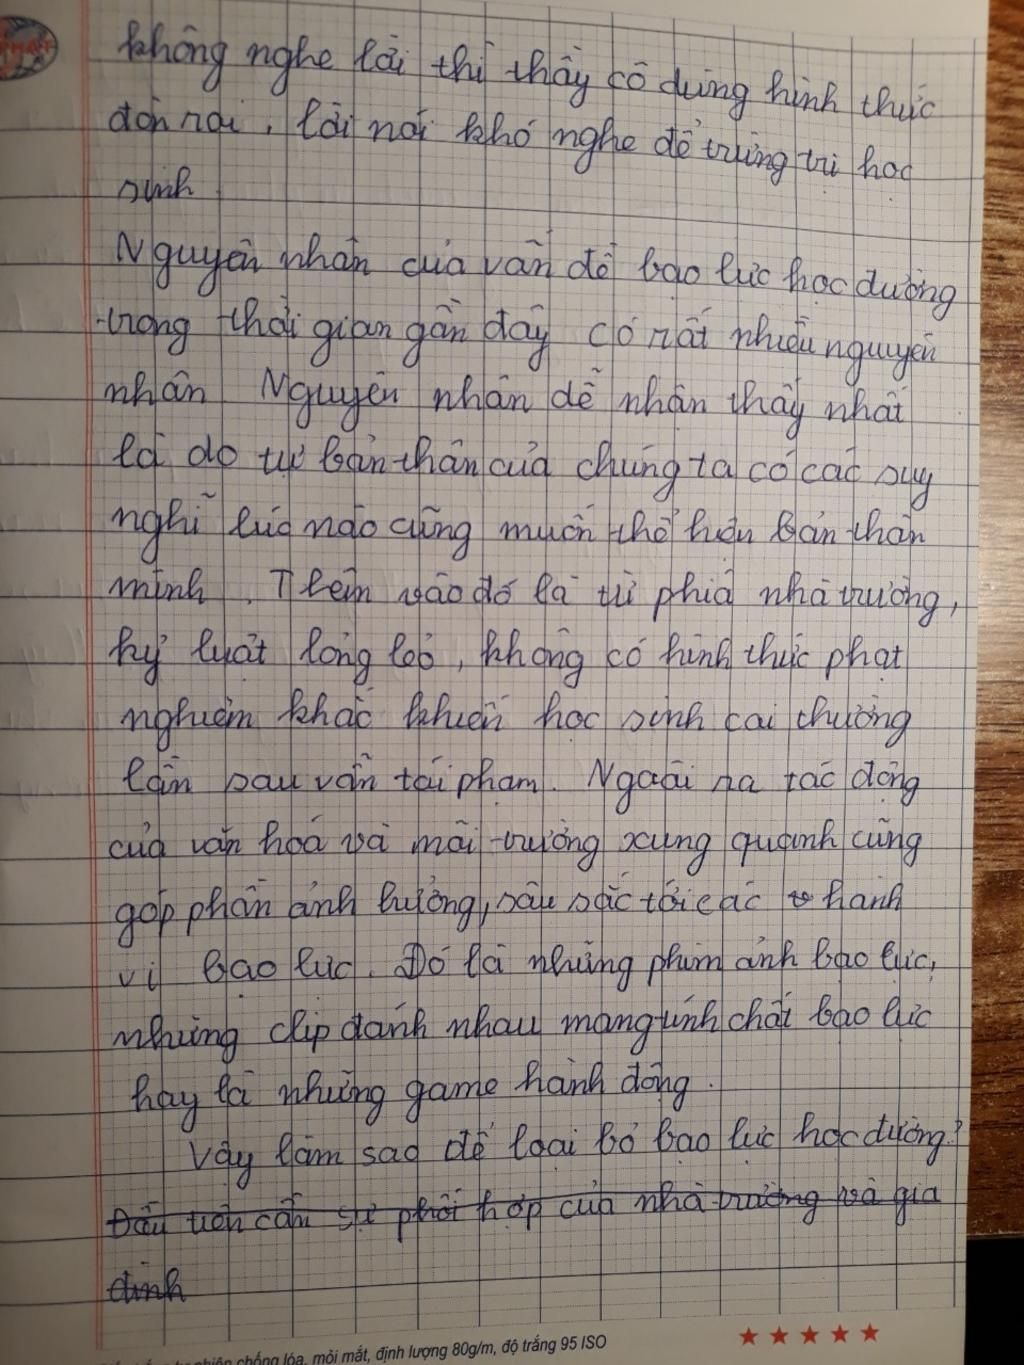 không nghe lời thì thầy cô dùng hình thức
đòn roi, lời nói khó nghe để trừng trị học
sinh
Nguyên nhân của vấn đề bạo lực học đường
trong thời gian gần đây có rất nhiều nguyên
nhân Nguyên nhân dễ nhận thấy nhất
là do tự bản thân của chúng ta có các suy
nghĩ lúc nào cũng muốn thể hiện bản thân
mình. Thêm vào đó là từ phía nhà trường,
kỷ luật lỏng lẻo, không có hình thức phạt
nghiêm khắc khiến học sinh coi thường
lần sau vẫn tái phạm. Ngoài ra tác động
của văn hoá và môi trường xung quanh cũng
góp phần ảnh hưởng, sâu sắc tới các hành
vi bạo lực. Đó là những phim ảnh bạo lực,
những clip đánh nhau mang tính chất bạo lực
hay là những game hành động.
Vậy làm sao để loại bỏ bạo lực học đường?
Đầu tiên cần sự phối hợp của nhà trường và gia
đình
chống lóa, mỏi mắt, định lượng 80g/m, độ trắng 95 ISO